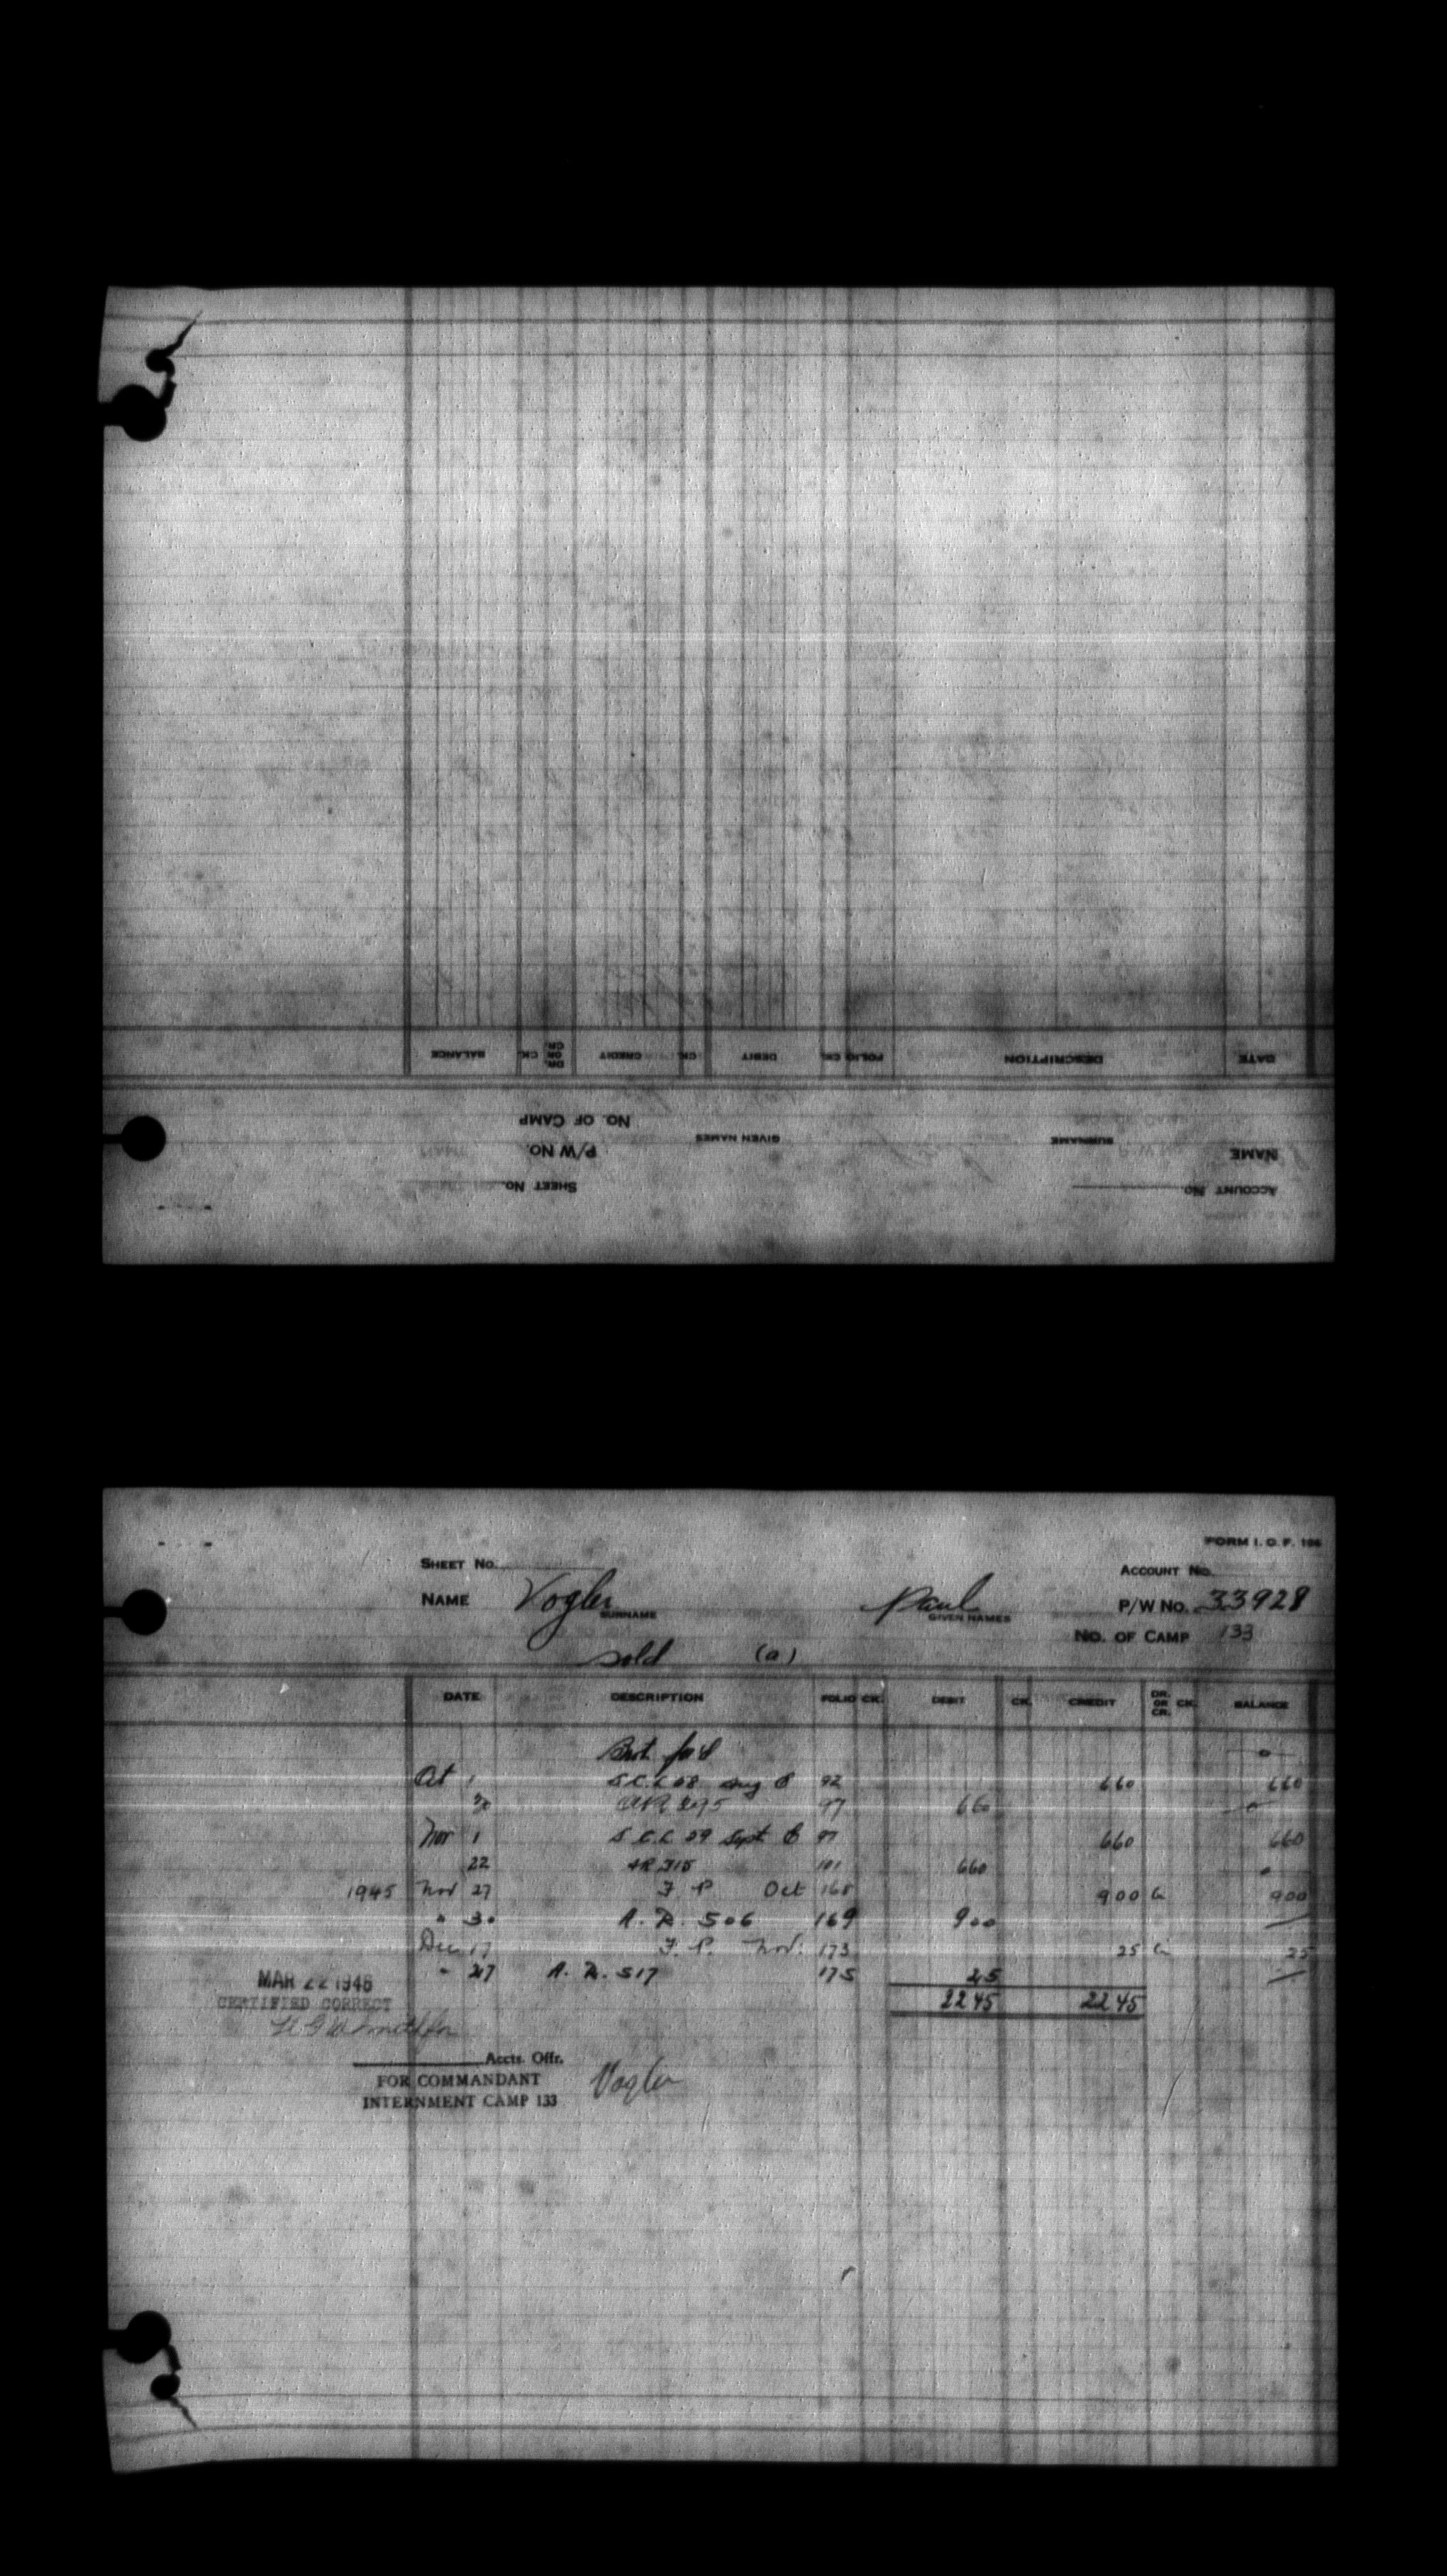 BALANCE CK. DR. OR CR. CREDIT CK. DEBIT FOLIO CK. DESCRIPTION DATE
NO. OF CAMP
P/W NO. GIVEN NAMES SURNAME NAME
SHEET NO. ACCOUNT NO.
FORM I. O. P. 166
SHEET No. ACCOUNT No.
NAME Vogler Paul P/W No. 33928
SURNAME GIVEN NAMES
NO. OF CAMP 133
sold (a)
DATE DESCRIPTION FOLIO CK. DEBIT CK. CREDIT DR. OR CR. CK. BALANCE
Brt for'd 0
Oct 1 S.C.C 08 Aug 92 660 660
AR 295 97 660 0
Nov 1 S.C.C 09 Sept 97 660 660
22 AR 315 101 660
1945 Nov 27 F. P. Oct 168 900 Cr 900
" 30 A. R. 506 169 900 —
Dec 17 F. P. Nov. 173 25 Cr 25
" 27 A. R. 517 175 25 —
MAR 22 1946
CERTIFIED CORRECT 2245 2245
Accts. Offr.
FOR COMMANDANT Vogler
INTERNMENT CAMP 133